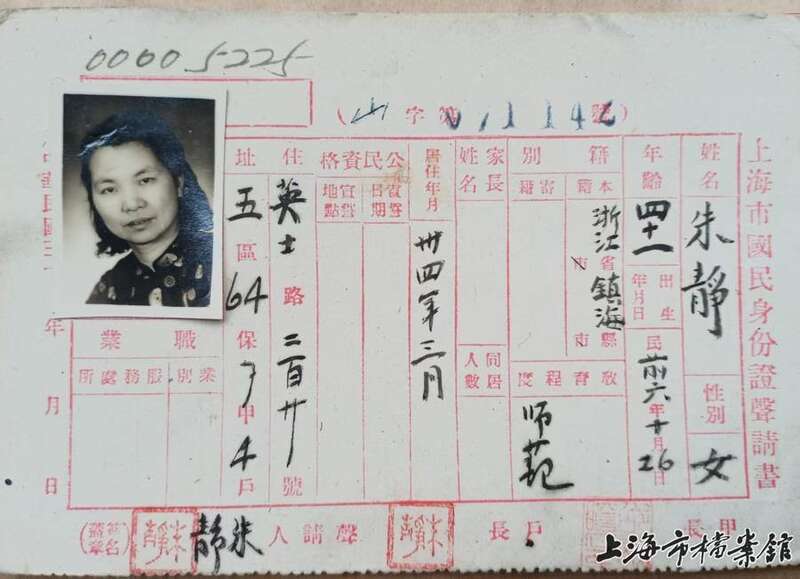 00005225
(山字第01142號)
上海市國民身份證聲請書
姓名 朱靜
性別 女
年齡 四十一
出生年月日 民前六年十月26日
籍別
本籍 浙江省市鎮海縣市
寄籍
教育程度 师范
家長姓名
同居人數
居住年月 卅四年三月
公民資格
宣誓日期
宣誓地點
住址 英士路二百廿號
五區64保7甲4戶
職業
業別
服務處所
年月日
甲長
戶長
聲請人 朱靜
(簽名蓋章)
上海市檔案館